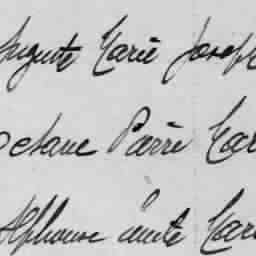 Auguste Marie Joseph
Octave Pierre Mar
Alphonse Émile Mar